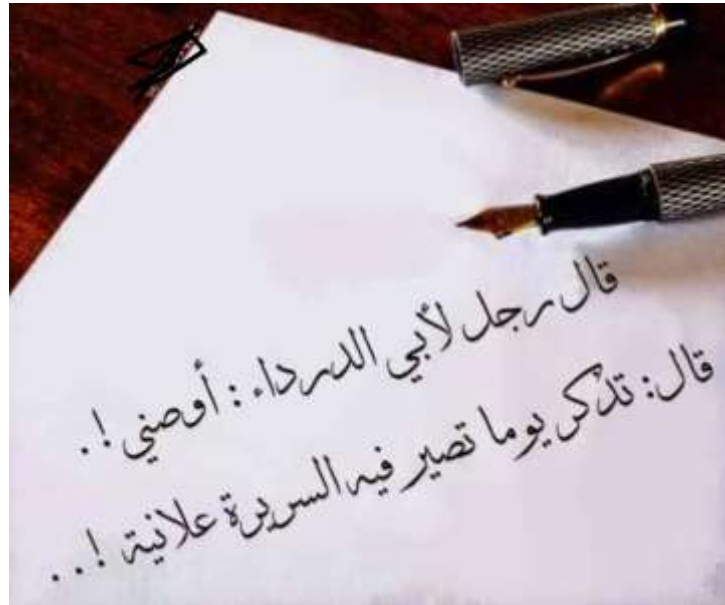 قال رجل لأبي الدرداء : أوصني ! .
قال: تذكر يوما تصير فيه السريرة علانية ! . .